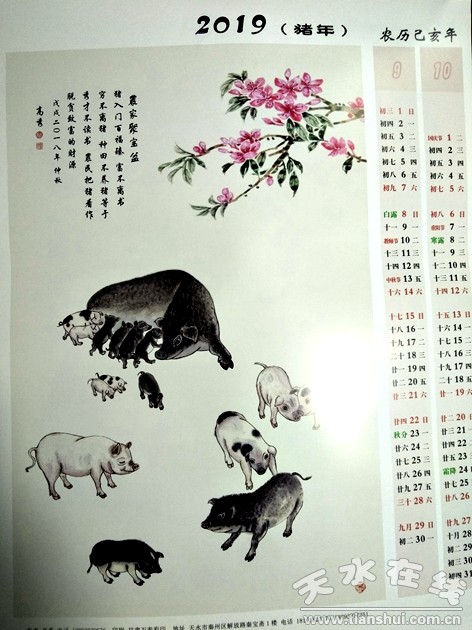 2019（猪年） 农历己亥年
農家聚宝盆
猪入门百福臻 富不离书
穷不离猪 种田不养猪等于
秀才不读书 農民把猪看作
脱贫致富的财源
戊戌二〇一八年仲秋
高秀
9
初三 1 日
初四 2 一
初五 3 二
初六 4 三
初七 5 四
初八 6 五
初九 7 六
白露 8 日
十一 9 一
教师节 10 二
十三 11 三
十四 12 四
中秋节 13 五
十六 14 六
十七 15 日
十八 16 一
十九 17 二
二十 18 三
廿一 19 四
廿二 20 五
廿三 21 六
廿四 22 日
秋分 23 一
廿六 24 二
廿七 25 三
廿八 26 四
廿九 27 五
三十 28 六
九月 29 日
初二 30 一
10
国庆节 1 二
初四 2 三
初五 3 四
初六 4 五
初七 5 六
初八 6 日
重阳节 7 一
寒露 8 二
十一 9 三
十二 10 四
十三 11 五
十四 12 六
十五 13 日
十六 14 一
十七 15 二
十八 16 三
十九 17 四
二十 18 五
廿一 19 六
廿二 20
廿三 21
廿四 22
廿五 23
霜降 24
廿七 25
廿八 26
廿九 27
十月 28
初二 29
初三 30
初四 31
地址 天水市秦州区解放路秦宝斋1楼 电话
天水在线
www.tianshui.com.cn